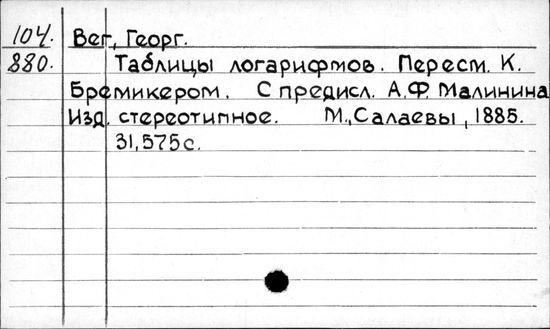 104. Вег, Георг.
880. Таблицы логарифмов. Пересм. К.
Бремикером. С предисл. А.Ф. Малинина
Изд. стереотипное. М., Салаевы, 1885.
31,575с.